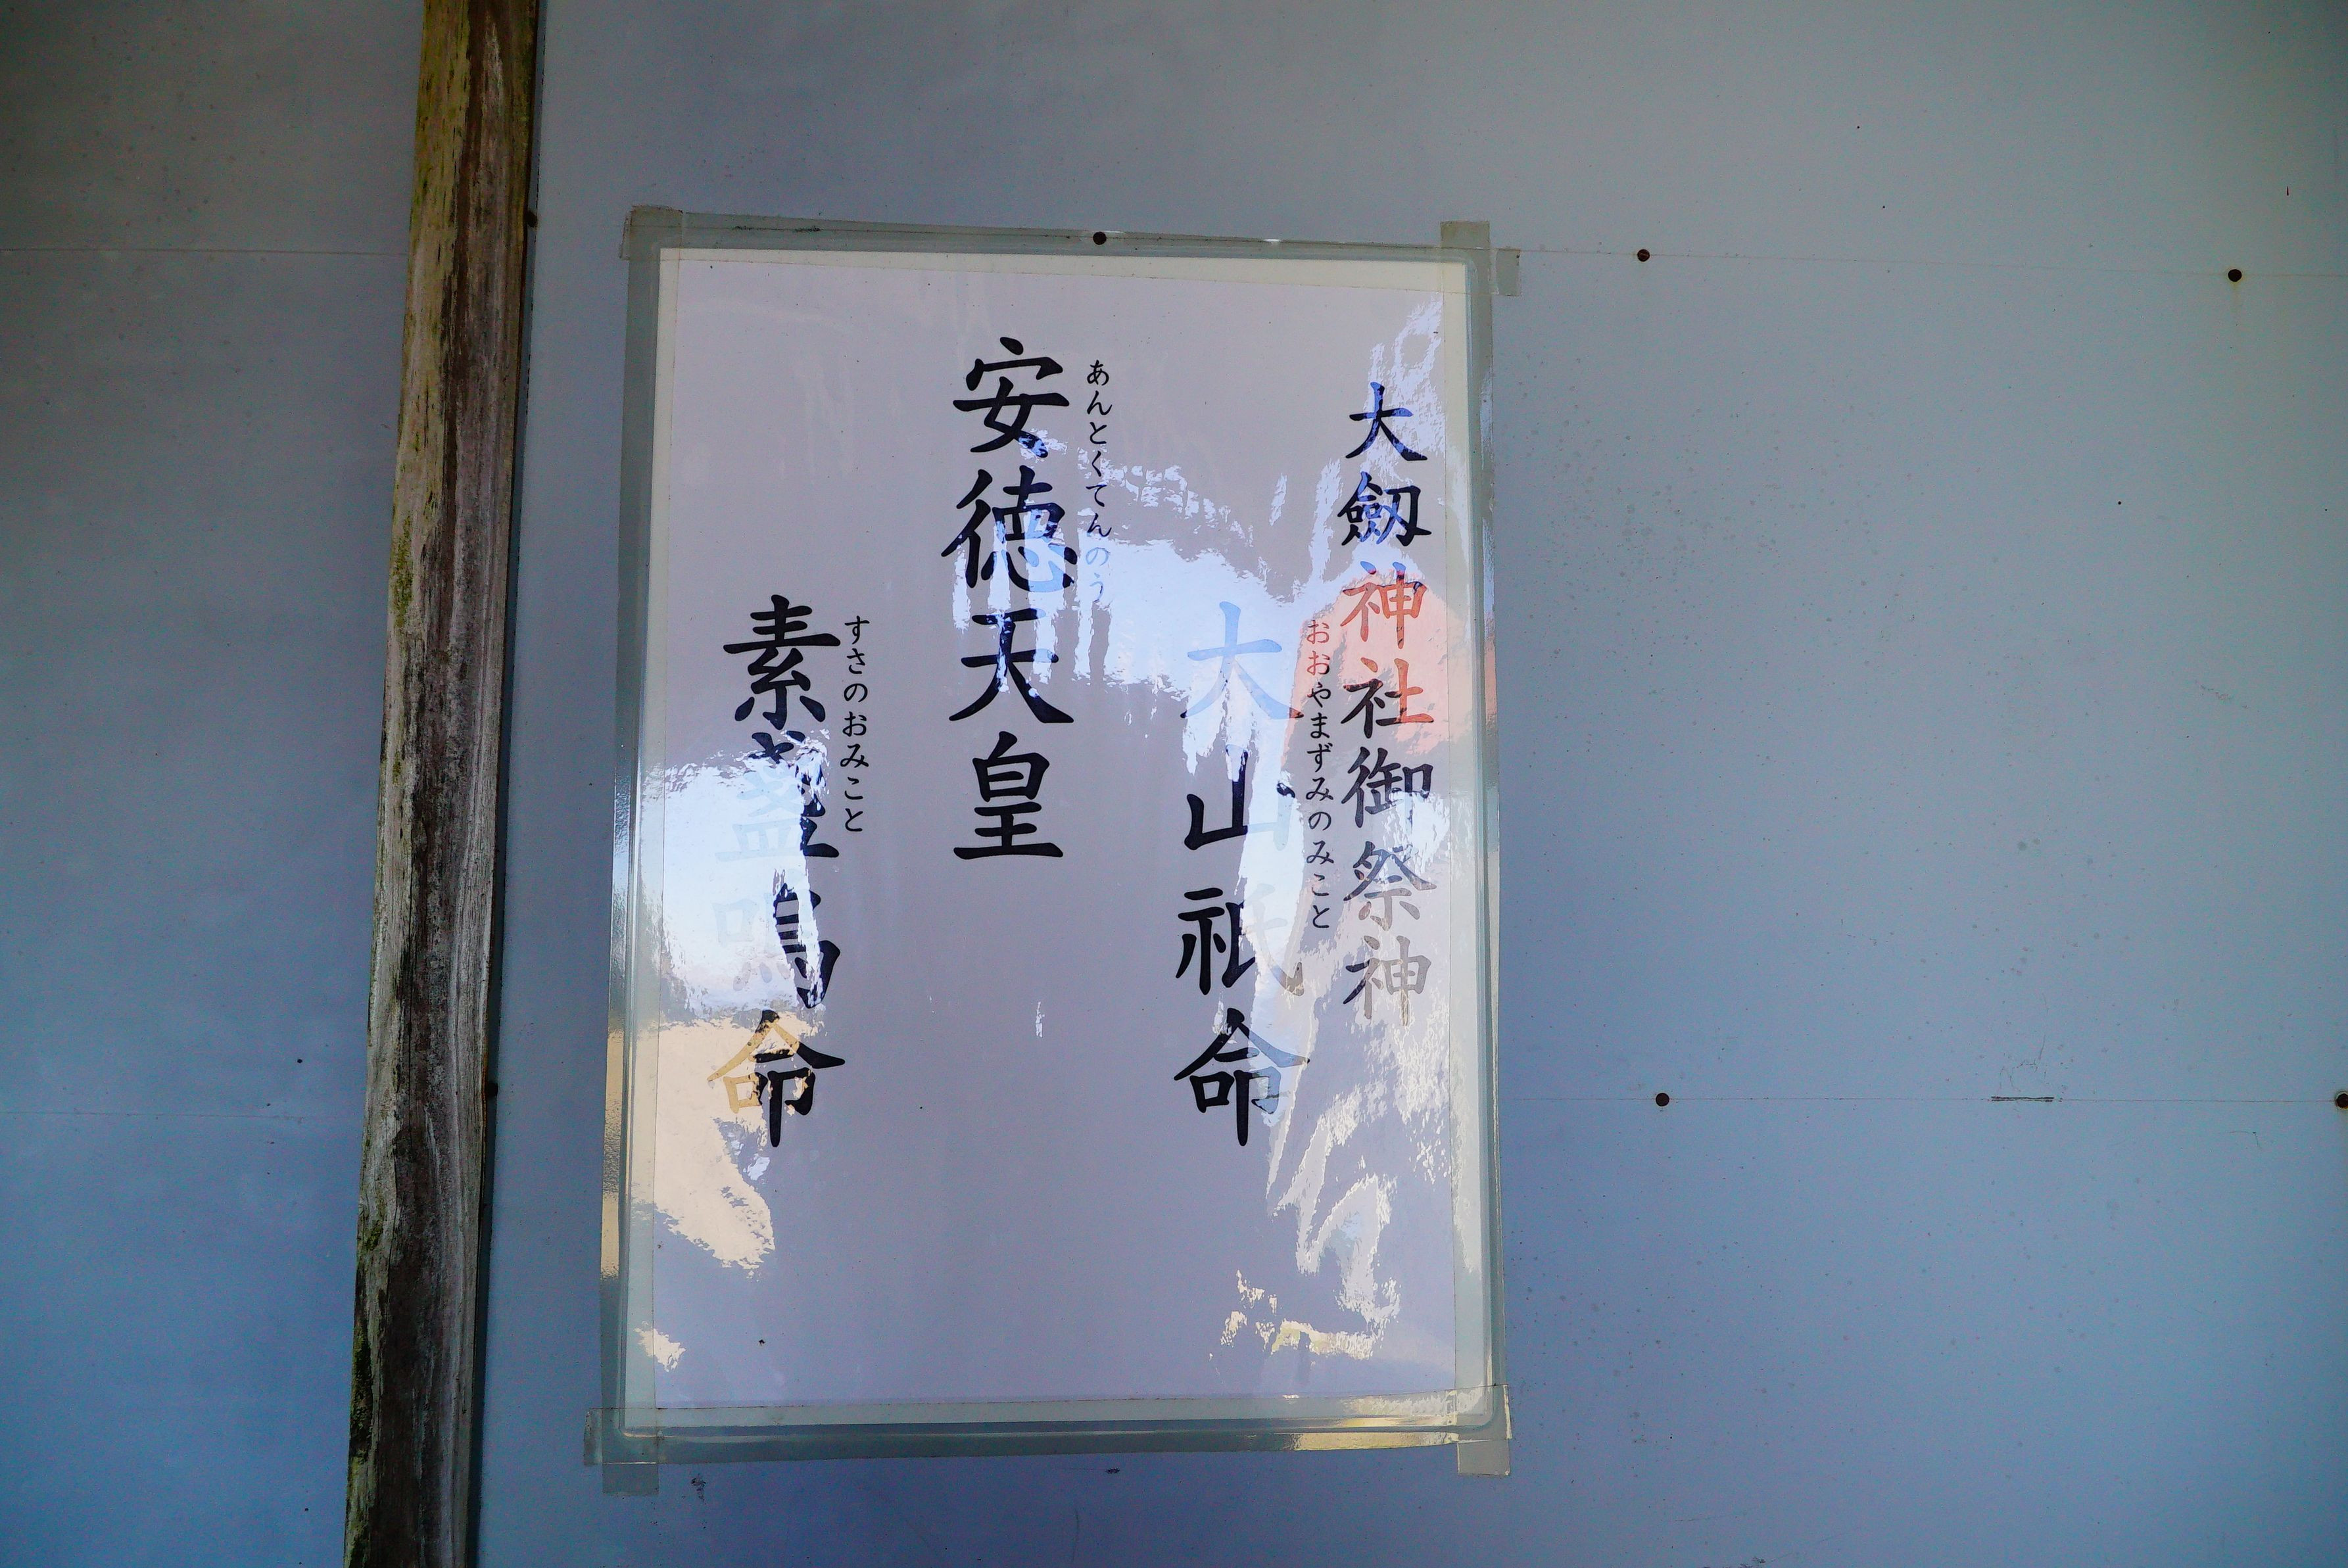 大劔神社御祭神
おおやまずみのみこと
大山祇命
あんとくてんのう
安徳天皇
すさのおみこと
素盞鳴命